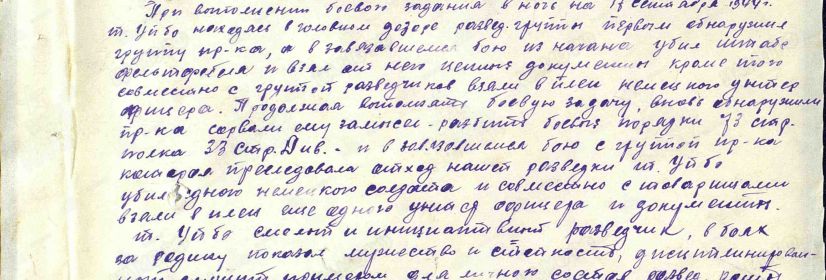 При выполнении боевого задания в ночь на 13 сентября 1944 г.
т. Уйбо находясь в головном дозоре развед. группы первым обнаружил
группу пр-ка, а в завязавшемся бою из нагана убил штабс
фельтфебеля и взял от него ценные документы кроме того
совместно с группой разведчиков взяли в плен немецкого унтер
офицера. Продолжая выполнять боевую задачу, вновь обнаружили
пр-ка сорвали ему замысел - разбить боевые порядки 73 стр.
полка 33 Стр. Див. - и в завязавшемся бою с группой пр-ка
которая преследовала отход нашей разведки т. Уйбо
убил одного немецкого солдата и совместно с товарищами
взяли в плен еще одного унтер офицера и документы.
т. Уйбо смелый и инициативный разведчик, в боях
за родину показал мужество и стойкость, дисциплинирован-
примером для личного состава развед. роты